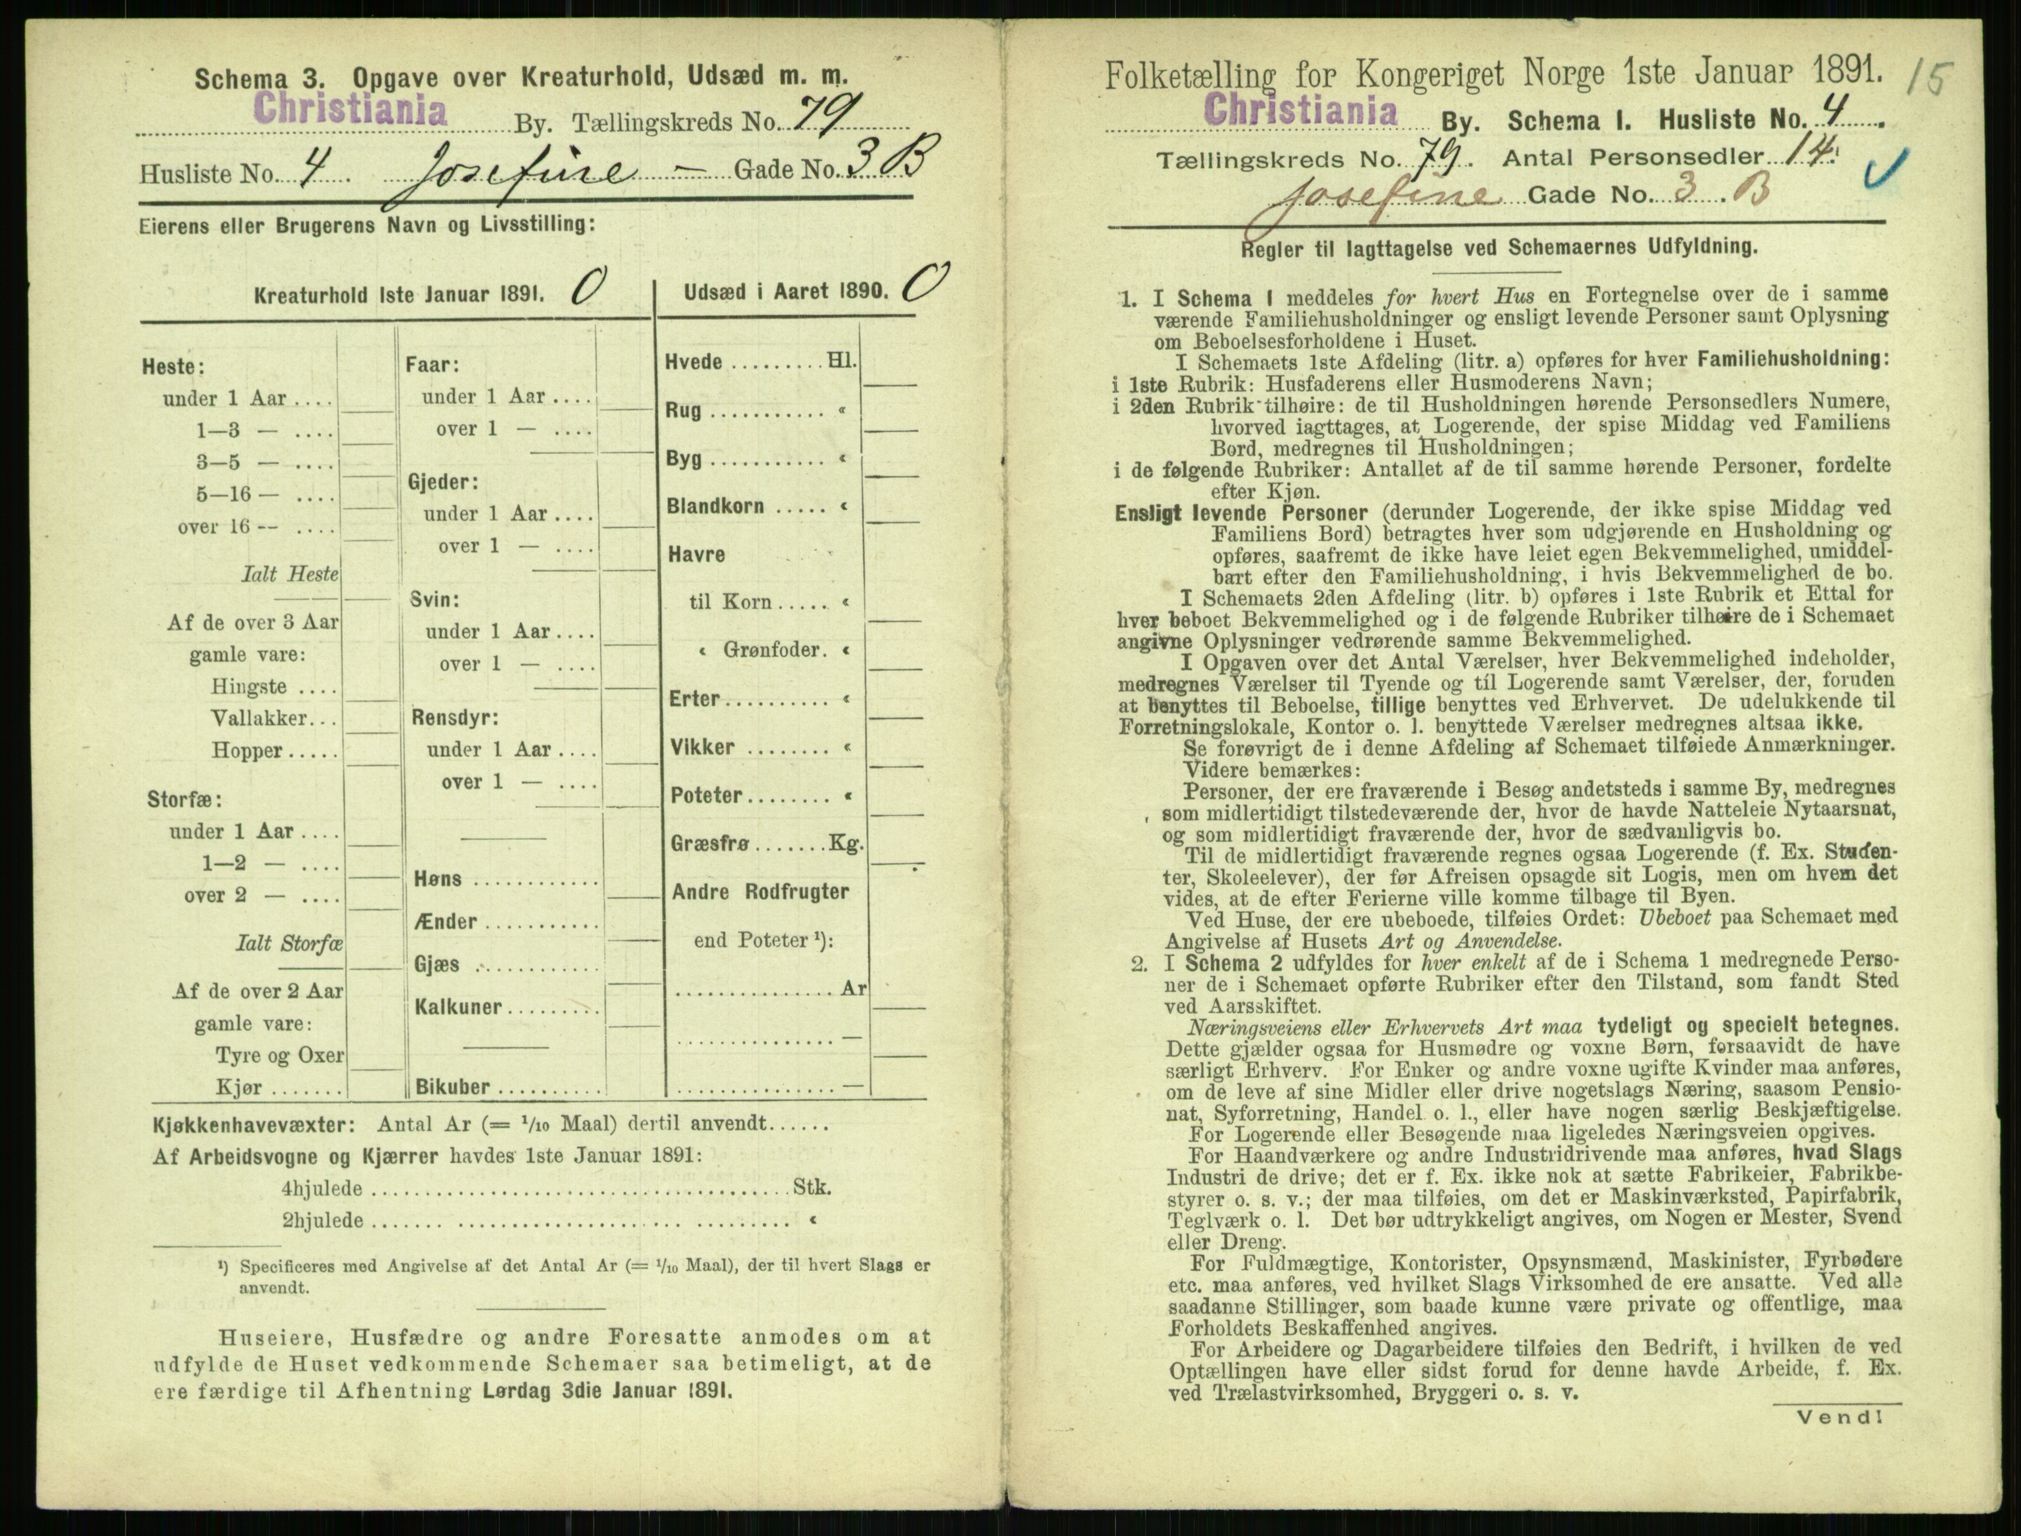 Schema 3. Opgave over Kreaturhold, Udsæd m. m.
Christiania By. Tællingskreds No. 79
Husliste No. 4 Josefine — Gade No. 3 B
Eierens eller Brugerens Navn og Livsstilling:
Kreaturhold 1ste Januar 1891. 0
Heste:
under 1 Aar ....
1—3 — ....
3—5 — ....
5—16 — ....
over 16 -- ....
Ialt Heste
Af de over 3 Aar
gamle vare:
Hingste ....
Vallakker...
Hopper .....
Storfæ:
under 1 Aar ....
1—2 — ....
over 2 — ....
Ialt Storfæ
Af de over 2 Aar
gamle vare:
Tyre og Oxer
Kjør .......
Faar:
under 1 Aar ....
over 1 — ....
Gjeder:
under 1 Aar ....
over 1 — ....
Svin:
under 1 Aar ....
over 1 — ....
Rensdyr:
under 1 Aar ....
over 1 — ....
Høns ............
Ænder ...........
Gjæs ............
Kalkuner.........
Bikuber ..........
Udsæd i Aaret 1890. 0
Hvede ......... Hl.
Rug ........... «
Byg ........... «
Blandkorn ..... «
Havre
til Korn ..... «
« Grønfoder. «
Erter.......... «
Vikker ........ «
Poteter........ «
Græsfrø ....... Kg.
Andre Rodfrugter
end Poteter ¹):
............... Ar
............... —
............... —
Kjøkkenhavevæxter: Antal Ar (= 1/10 Maal) dertil anvendt......
Af Arbeidsvogne og Kjærrer havdes 1ste Januar 1891:
4hjulede ....................................... Stk.
2hjulede ....................................... «
¹) Specificeres med Angivelse af det Antal Ar (= 1/10 Maal), der til hvert Slags er
anvendt.
Huseiere, Husfædre og andre Foresatte anmodes om at
udfylde de Huset vedkommende Schemaer saa betimeligt, at de
ere færdige til Afhentning Lørdag 3die Januar 1891.
Folketælling for Kongeriget Norge 1ste Januar 1891. 15
Christiania By. Schema 1. Husliste No. 4.
Tællingskreds No. 79. Antal Personsedler 14.
Josefine Gade No. 3. B
Regler til Iagttagelse ved Schemaernes Udfyldning.
1. I Schema 1 meddeles for hvert Hus en Fortegnelse over de i samme
værende Familiehusholdninger og ensligt levende Personer samt Oplysning
om Beboelsesforholdene i Huset.
I Schemaets 1ste Afdeling (litr. a) opføres for hver Familiehusholdning:
i 1ste Rubrik: Husfaderens eller Husmoderens Navn;
i 2den Rubrik tilhøire: de til Husholdningen hørende Personsedlers Numere,
hvorved iagttages, at Logerende, der spise Middag ved Familiens
Bord, medregnes til Husholdningen;
i de følgende Rubriker: Antallet af de til samme hørende Personer, fordelte
efter Kjøn.
Ensligt levende Personer (derunder Logerende, der ikke spise Middag ved
Familiens Bord) betragtes hver som udgjørende en Husholdning og
opføres, saafremt de ikke have leiet egen Bekvemmelighed, umiddel-
bart efter den Familiehusholdning, i hvis Bekvemmelighed de bo.
I Schemaets 2den Afdeling (litr. b) opføres i 1ste Rubrik et Ettal for
hver beboet Bekvemmelighed og i de følgende Rubriker tilhøire de i Schemaet
angivne Oplysninger vedrørende samme Bekvemmelighed.
I Opgaven over det Antal Værelser, hver Bekvemmelighed indeholder,
medregnes Værelser til Tyende og til Logerende samt Værelser, der, foruden
at benyttes til Beboelse, tillige benyttes ved Erhvervet. De udelukkende til
Forretningslokale, Kontor o. l. benyttede Værelser medregnes altsaa ikke.
Se forøvrigt de i denne Afdeling af Schemaet tilføiede Anmærkninger.
Videre bemærkes:
Personer, der ere fraværende i Besøg andetsteds i samme By, medregnes
som midlertidigt tilstedeværende der, hvor de havde Natteleie Nytaarsnat,
og som midlertidigt fraværende der, hvor de sædvanligvis bo.
Til de midlertidigt fraværende regnes ogsaa Logerende (f. Ex. Studen-
ter, Skoleelever), der før Afreisen opsagde sit Logis, men om hvem det
vides, at de efter Ferierne ville komme tilbage til Byen.
Ved Huse, der ere ubeboede, tilføies Ordet: Ubeboet paa Schemaet med
Angivelse af Husets Art og Anvendelse.
2. I Schema 2 udfyldes for hver enkelt af de i Schema 1 medregnede Perso-
ner de i Schemaet opførte Rubriker efter den Tilstand, som fandt Sted
ved Aarsskiftet.
Næringsveiens eller Erhvervets Art maa tydeligt og specielt betegnes.
Dette gjælder ogsaa for Husmødre og voxne Børn, forsaavidt de have
særligt Erhverv. For Enker og andre voxne ugifte Kvinder maa anføres,
om de leve af sine Midler eller drive nogetslags Næring, saasom Pensio-
nat, Syforretning, Handel o. l., eller have nogen særlig Beskjæftigelse.
For Logerende eller Besøgende maa ligeledes Næringsveien opgives.
For Haandværkere og andre Industridrivende maa anføres, hvad Slags
Industri de drive; det er f. Ex. ikke nok at sætte Fabrikeier, Fabrikbe-
styrer o. s. v.; der maa tilføies, om det er Maskinværksted, Papirfabrik,
Teglværk o. l. Det bør udtrykkeligt angives, om Nogen er Mester, Svend
eller Dreng.
For Fuldmægtige, Kontorister, Opsynsmænd, Maskinister, Fyrbødere
etc. maa anføres, ved hvilket Slags Virksomhed de ere ansatte. Ved alle
saadanne Stillinger, som baade kunne være private og offentlige, maa
Forholdets Beskaffenhed angives.
For Arbeidere og Dagarbeidere tilføies den Bedrift, i hvilken de ved
Optællingen have eller sidst forud for denne havde Arbeide, f. Ex.
ved Trælastvirksomhed, Bryggeri o. s. v.
Vend!